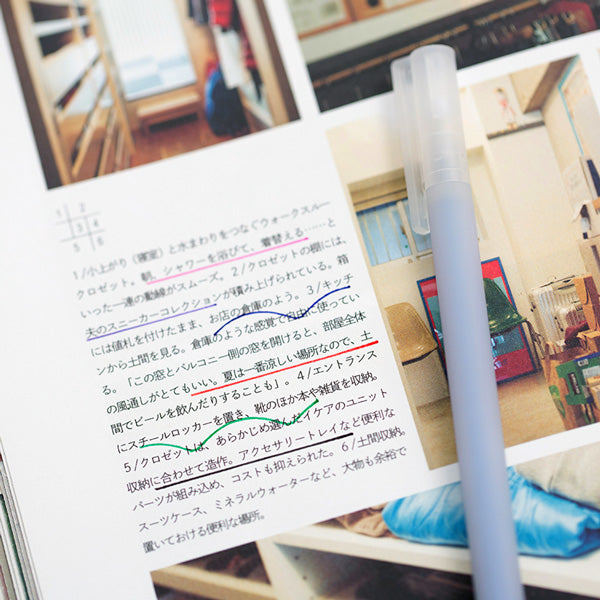 1 2
3 4
5 6
1/小上がり（寝室）と水まわりをつなぐウォークスルー
クロゼット。朝、シャワーを浴びて、着替える……と
いった一連の動線がスムーズ。2/クロゼットの棚には、
夫のスニーカーコレクションが積み上げられている。箱
には値札を付けたまま、お店の倉庫のよう。3/キッチ
ンから土間を見る。倉庫のような感覚で自由に使ってい
る。「この窓とバルコニー側の窓を開けると、部屋全体
の風通しがとてもいい。夏は一番涼しい場所なので、土
間でビールを飲んだりすることも」。4/エントランス
にスチールロッカーを置き、靴のほか本や雑貨を収納。
5/クロゼットは、あらかじめ選んだイケアのユニット
収納に合わせて造作。アクセサリートレイなど便利な
パーツが組み込め、コストも抑えられた。6/土間収納。
スーツケース、ミネラルウォーターなど、大物も余裕で
置いておける便利な場所。